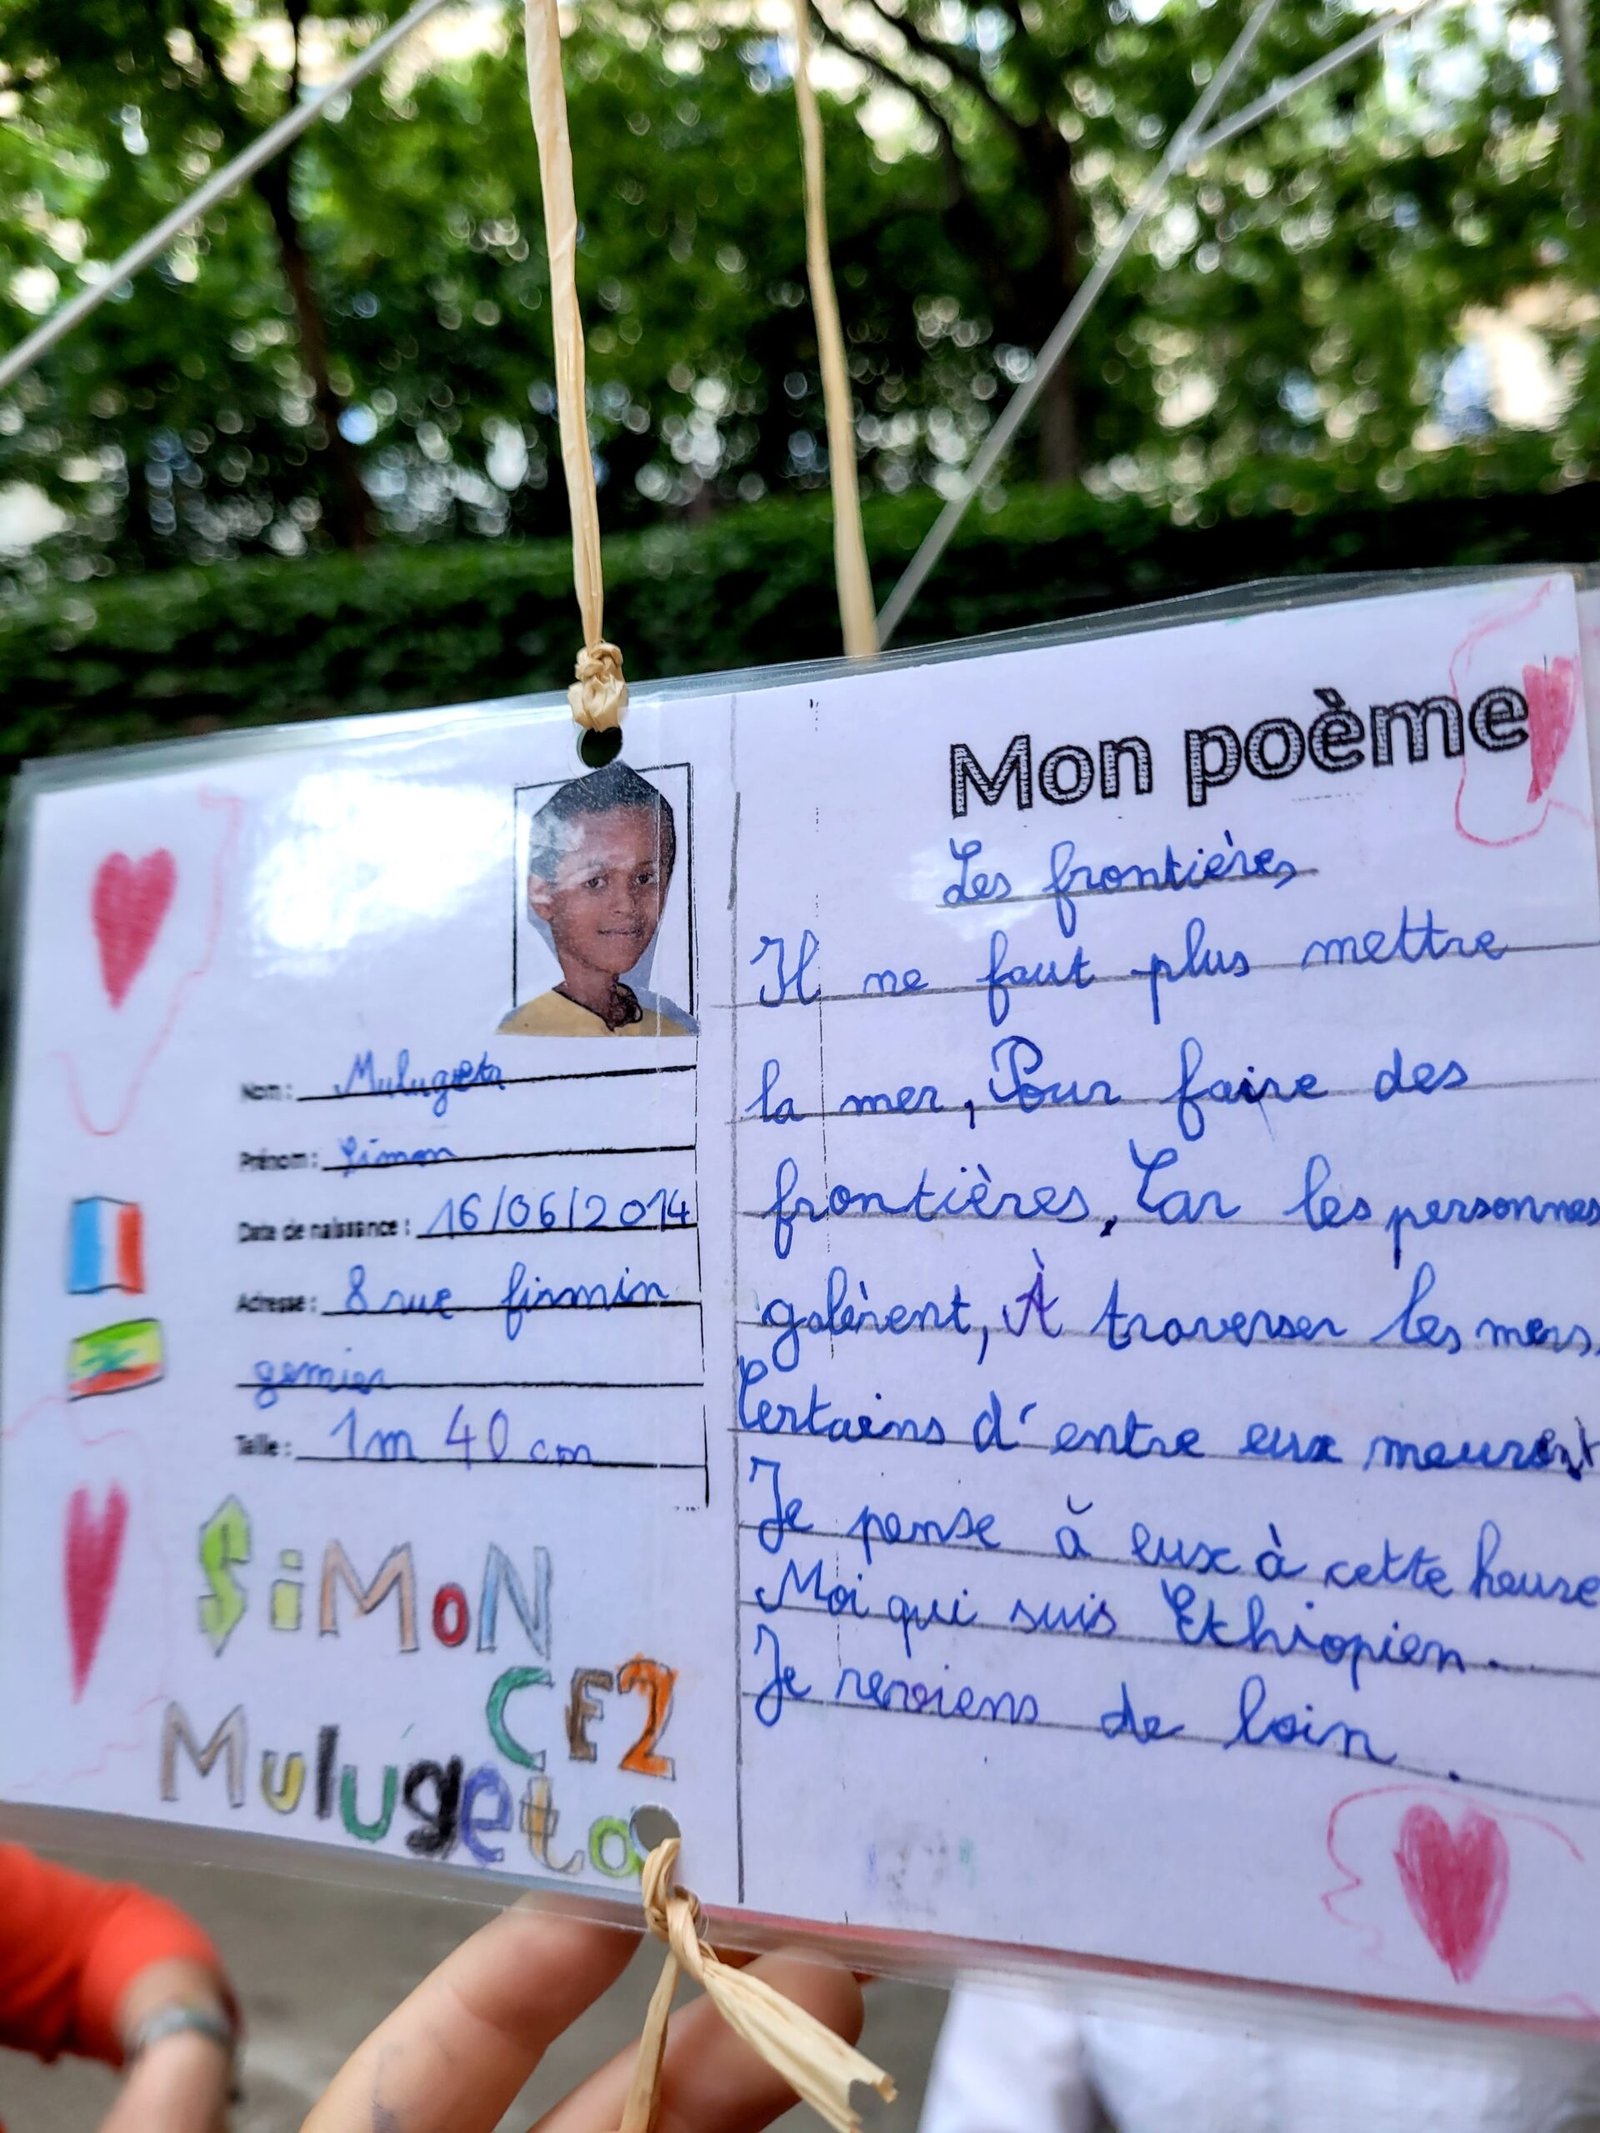 Nom : Mulugeta
Prénom : Simon
Date de naissance : 16/06/2014
Adresse : 8 rue firmin
gemier
Taille : 1m 40 cm
SiMoN
CE2
Mulugeta
Mon poème
Les frontières
Il ne faut plus mettre
la mer, Pour faire des
frontières, Car les personnes
galèrent, À traverser les mers.
Certains d'entre eux meurent
Je pense à eux à cette heure
Moi qui suis Ethiopien.
Je reviens de loin.